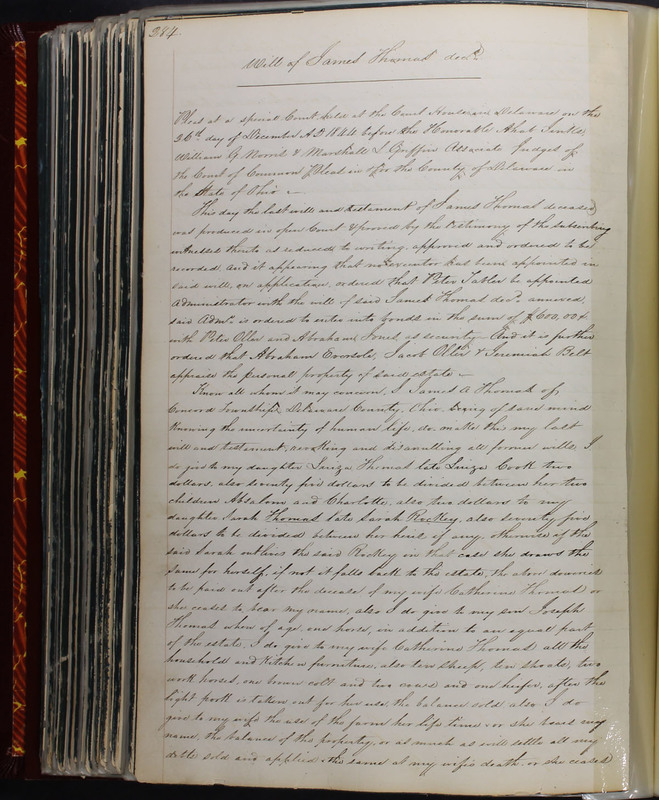 284
Will of James Thomas decd
Pleas at a special Court held at the Court House in Delaware on the
26th day of December A.D 1844 before the Honorable
William G Norris & Marshall L Griffin Associate Judges of
the Court of Common Pleas in & for the County of Delaware in
the State of Ohio –
This day the last will and testament of James Thomas deceased
was produced in open Court & proved by the testimony of the subscribing
witnesses thereto as reduced to writing, approved and ordered to be
recorded, and it appearing that no executor has been appointed in
said will, on application, ordered that Peter Tabler be appointed
Administrator with the will of said James Thomas decd annexed,
said Admr is ordered to enter into bonds in the sum of $600,00
with Peter Oller and Abraham Jones, as security – And it is further
ordered that Abraham Eversole, Jacob Oller & Jeremiah Belt
appraise the personal property of said estate –
Know all whom it may concern, I James A Thomas of
Concord Township, Delaware County, Ohio. being of sane mind
Knowing the uncertainty of human life, do make this my last
will and testament, revoking and disanulling all former wills, I
do give to my daughter Luiza Thomas late Luiza Cook two
dollars, also seventy five dollars to be divided between her two
children Absalom and Charlotte, also two dollars to my
daughter Sarah Thomas late Sarah Rockey, also seventy five
dollars to be divided between her heirs if any, otherwise if the
said Sarah outlives the said Rockey in that case she draws the
same for herself, if not it falls back to the estate, the above
to be paid out after the decease of my wife Catherine Thomas or
she ceases to bear my name, also I do give to my son Joseph
Thomas when of age, one horse, in addition to an equal part
of the estate, I do give to my wife Catherine Thomas all the
household and Kitchen furniture, also ten sheep, ten shoats, two
work horses, one brown colt and two cows and one heifer, after the
light pork is taken out for her use, the balance sold also I do
give to my wife the use of the farm her life time or she bears my
name, the balance of the property, or as much as will settle all my
debts sold and applied the same at my wifes death or she ceases